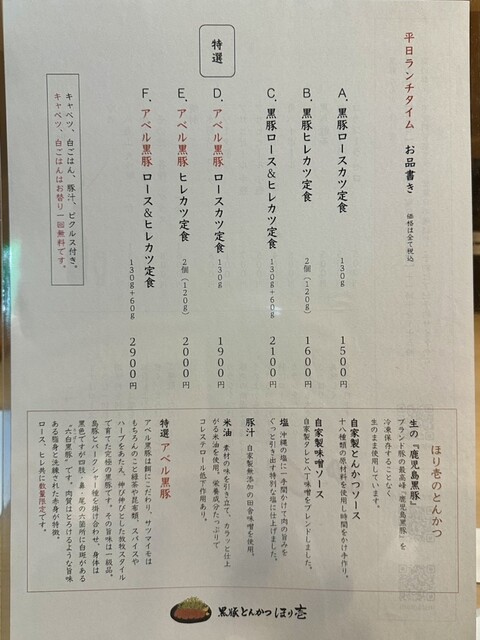 平日ランチタイム お品書き 価格は全て税込
A. 黒豚ロースカツ定食 130g 1500円
B. 黒豚ヒレカツ定食 2個(120g) 1600円
C. 黒豚ロース&ヒレカツ定食 130g+60g 2100円
特選
D. アベル黒豚 ロースカツ定食 130g 1900円
E. アベル黒豚 ヒレカツ定食 2個(120g) 2000円
F. アベル黒豚 ロース&ヒレカツ定食 130g+60g 2900円
キャベツ、白ごはん、豚汁、ピクルス付き。
キャベツ、白ごはんはお替り一回無料です。
ほり壱のとんかつ
生の『鹿児島黒豚』
ブランド豚の最高峰「鹿児島黒豚」を
冷凍保存することなく
生のまま使用しています。
自家製とんかつソース
十八種類の原材料を使用し時間をかけ手作り。
自家製味噌ソース
自家製タレと八丁味噌をブレンドしました。
塩 沖縄の塩に一手間かけて肉の旨みを
ぐっと引き出す特別な塩に仕上げました。
豚汁 自家製無添加の田舎味噌を使用。
米油 素材の味を引き立て、カラッと仕上
がる米油を使用。栄養成分たっぷりで
コレステロール低下作用あり。
特選 アベル黒豚
アベル黒豚は餌にこだわり、サツマイモは
もちろんのこと緑茶や昆布類、スパイスや
ハーブをあたえ、伸び伸びとした放牧スタイル
で育てた究極の黒豚です。その旨味は一級品。
島豚とバークシャー種を掛け合わせ、身体は
黒色ですが四肢・鼻・尾の六箇所に白斑がある
"六白黒豚"です。肉質はとろけるような旨味
ある脂身と洗練された赤身が特徴。
ロース、ヒレ共に数量限定です。
黒豚とんかつ ほり壱